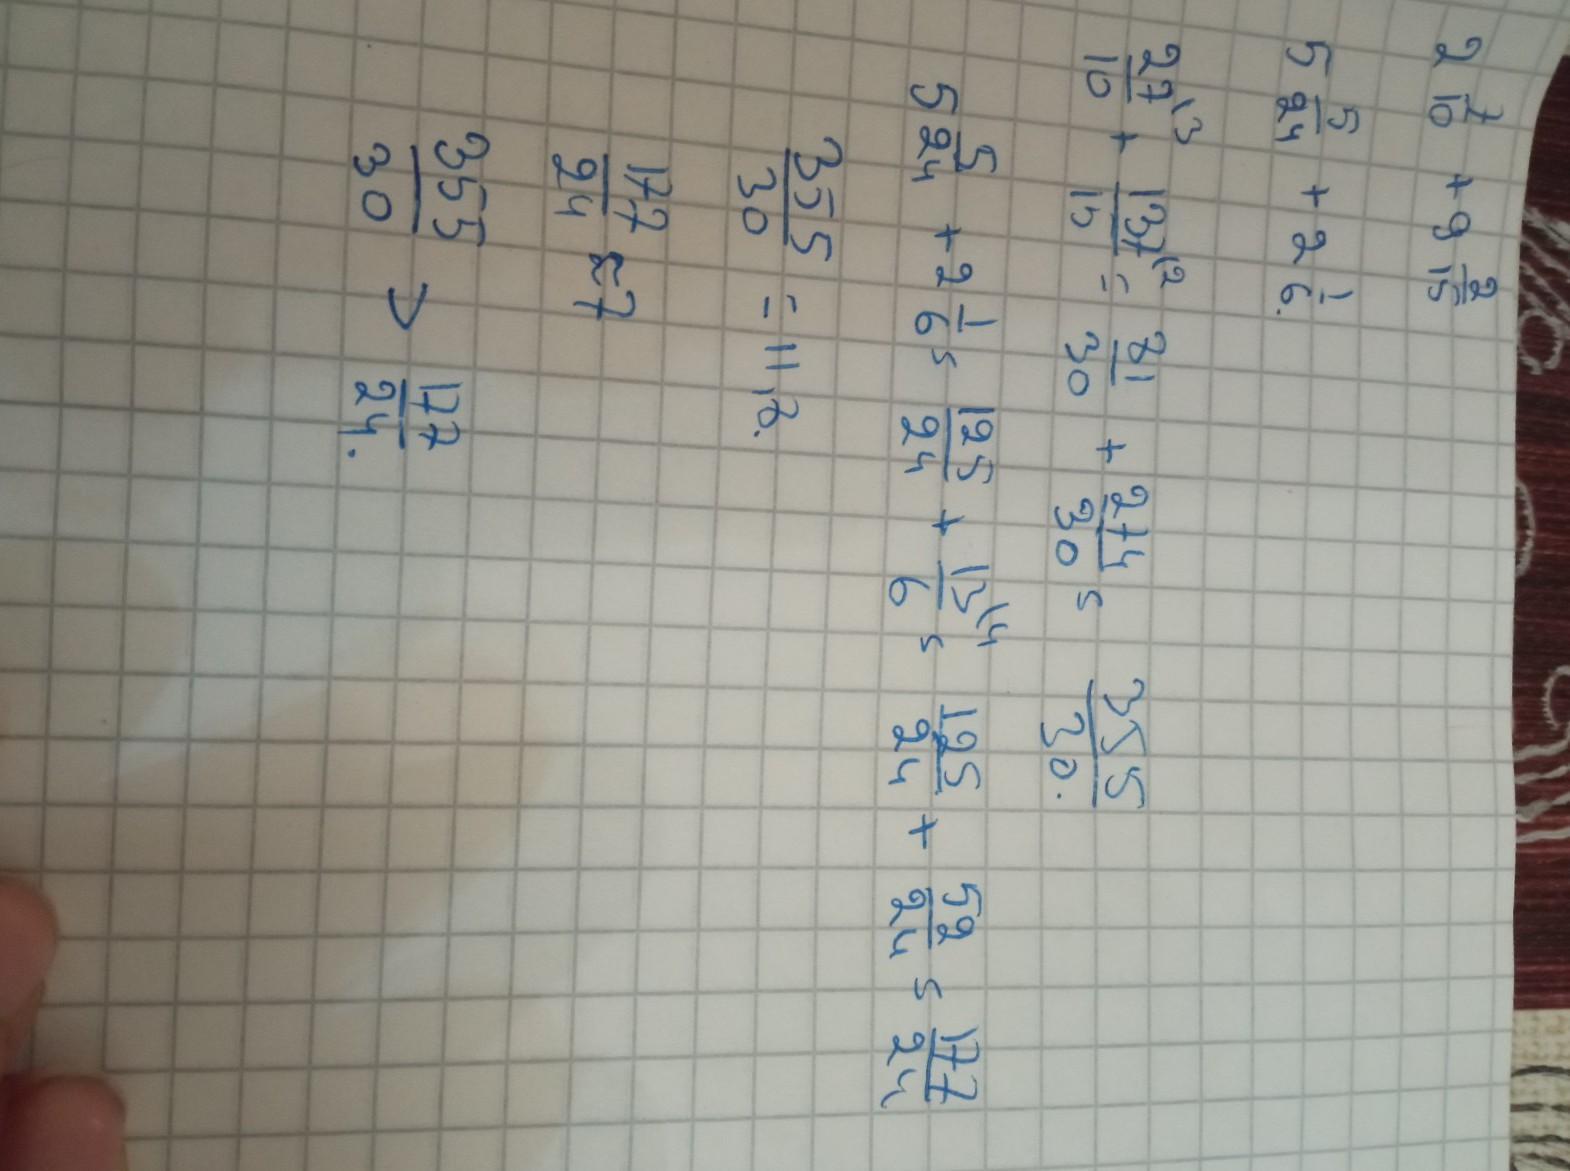 2 7/10 + 9 2/15
5 5/24 + 2 1/6.
27\3/10 + 137\2/15 = 81/30 + 274/30 = 355/30.
5 5/24 + 2 1/6 = 125/24 + 13\4/6 = 125/24 + 52/24 = 177/24
355/30 = 11,8.
177/24 ≈ 7
355/30 > 177/24.